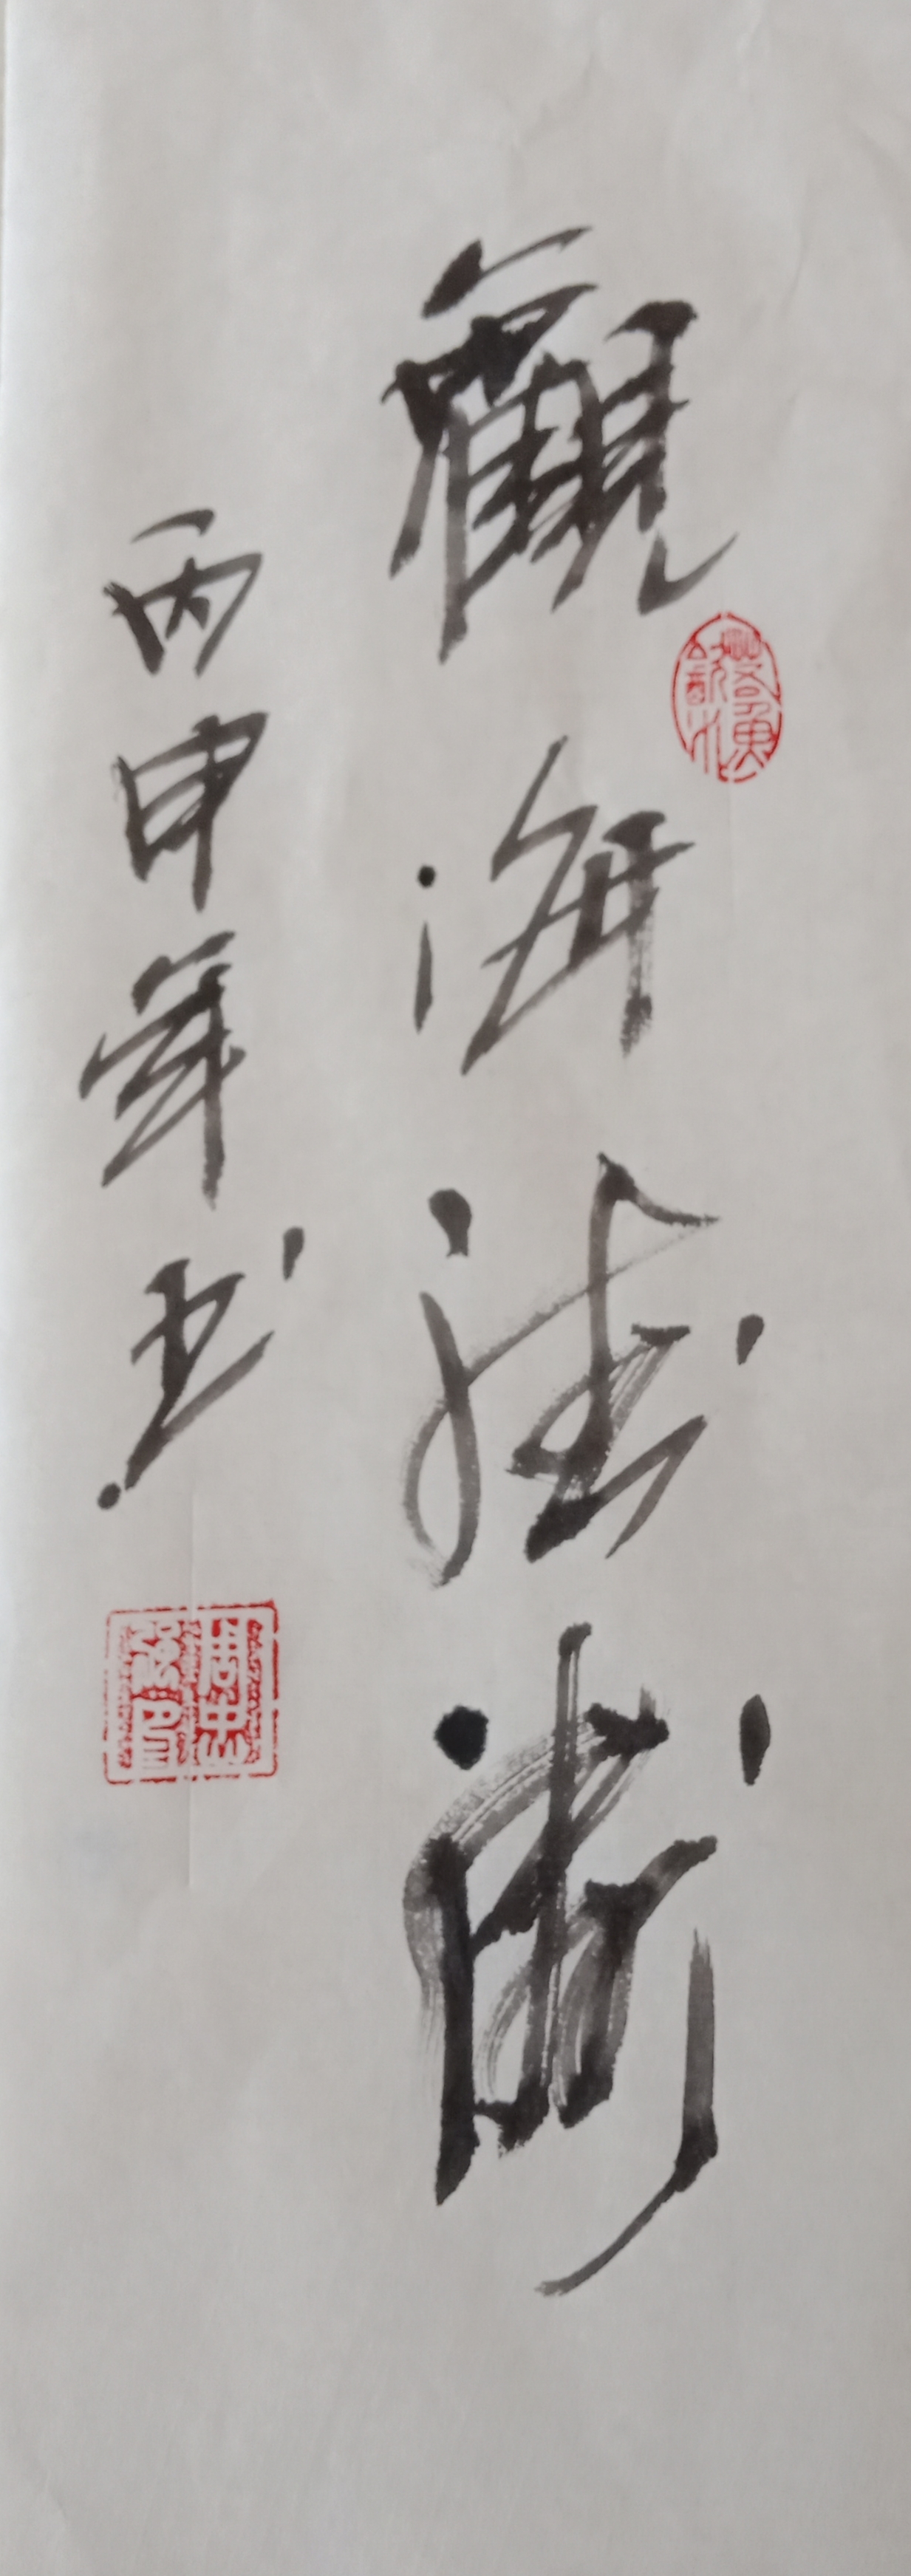 觀海聽濤
丙申年书